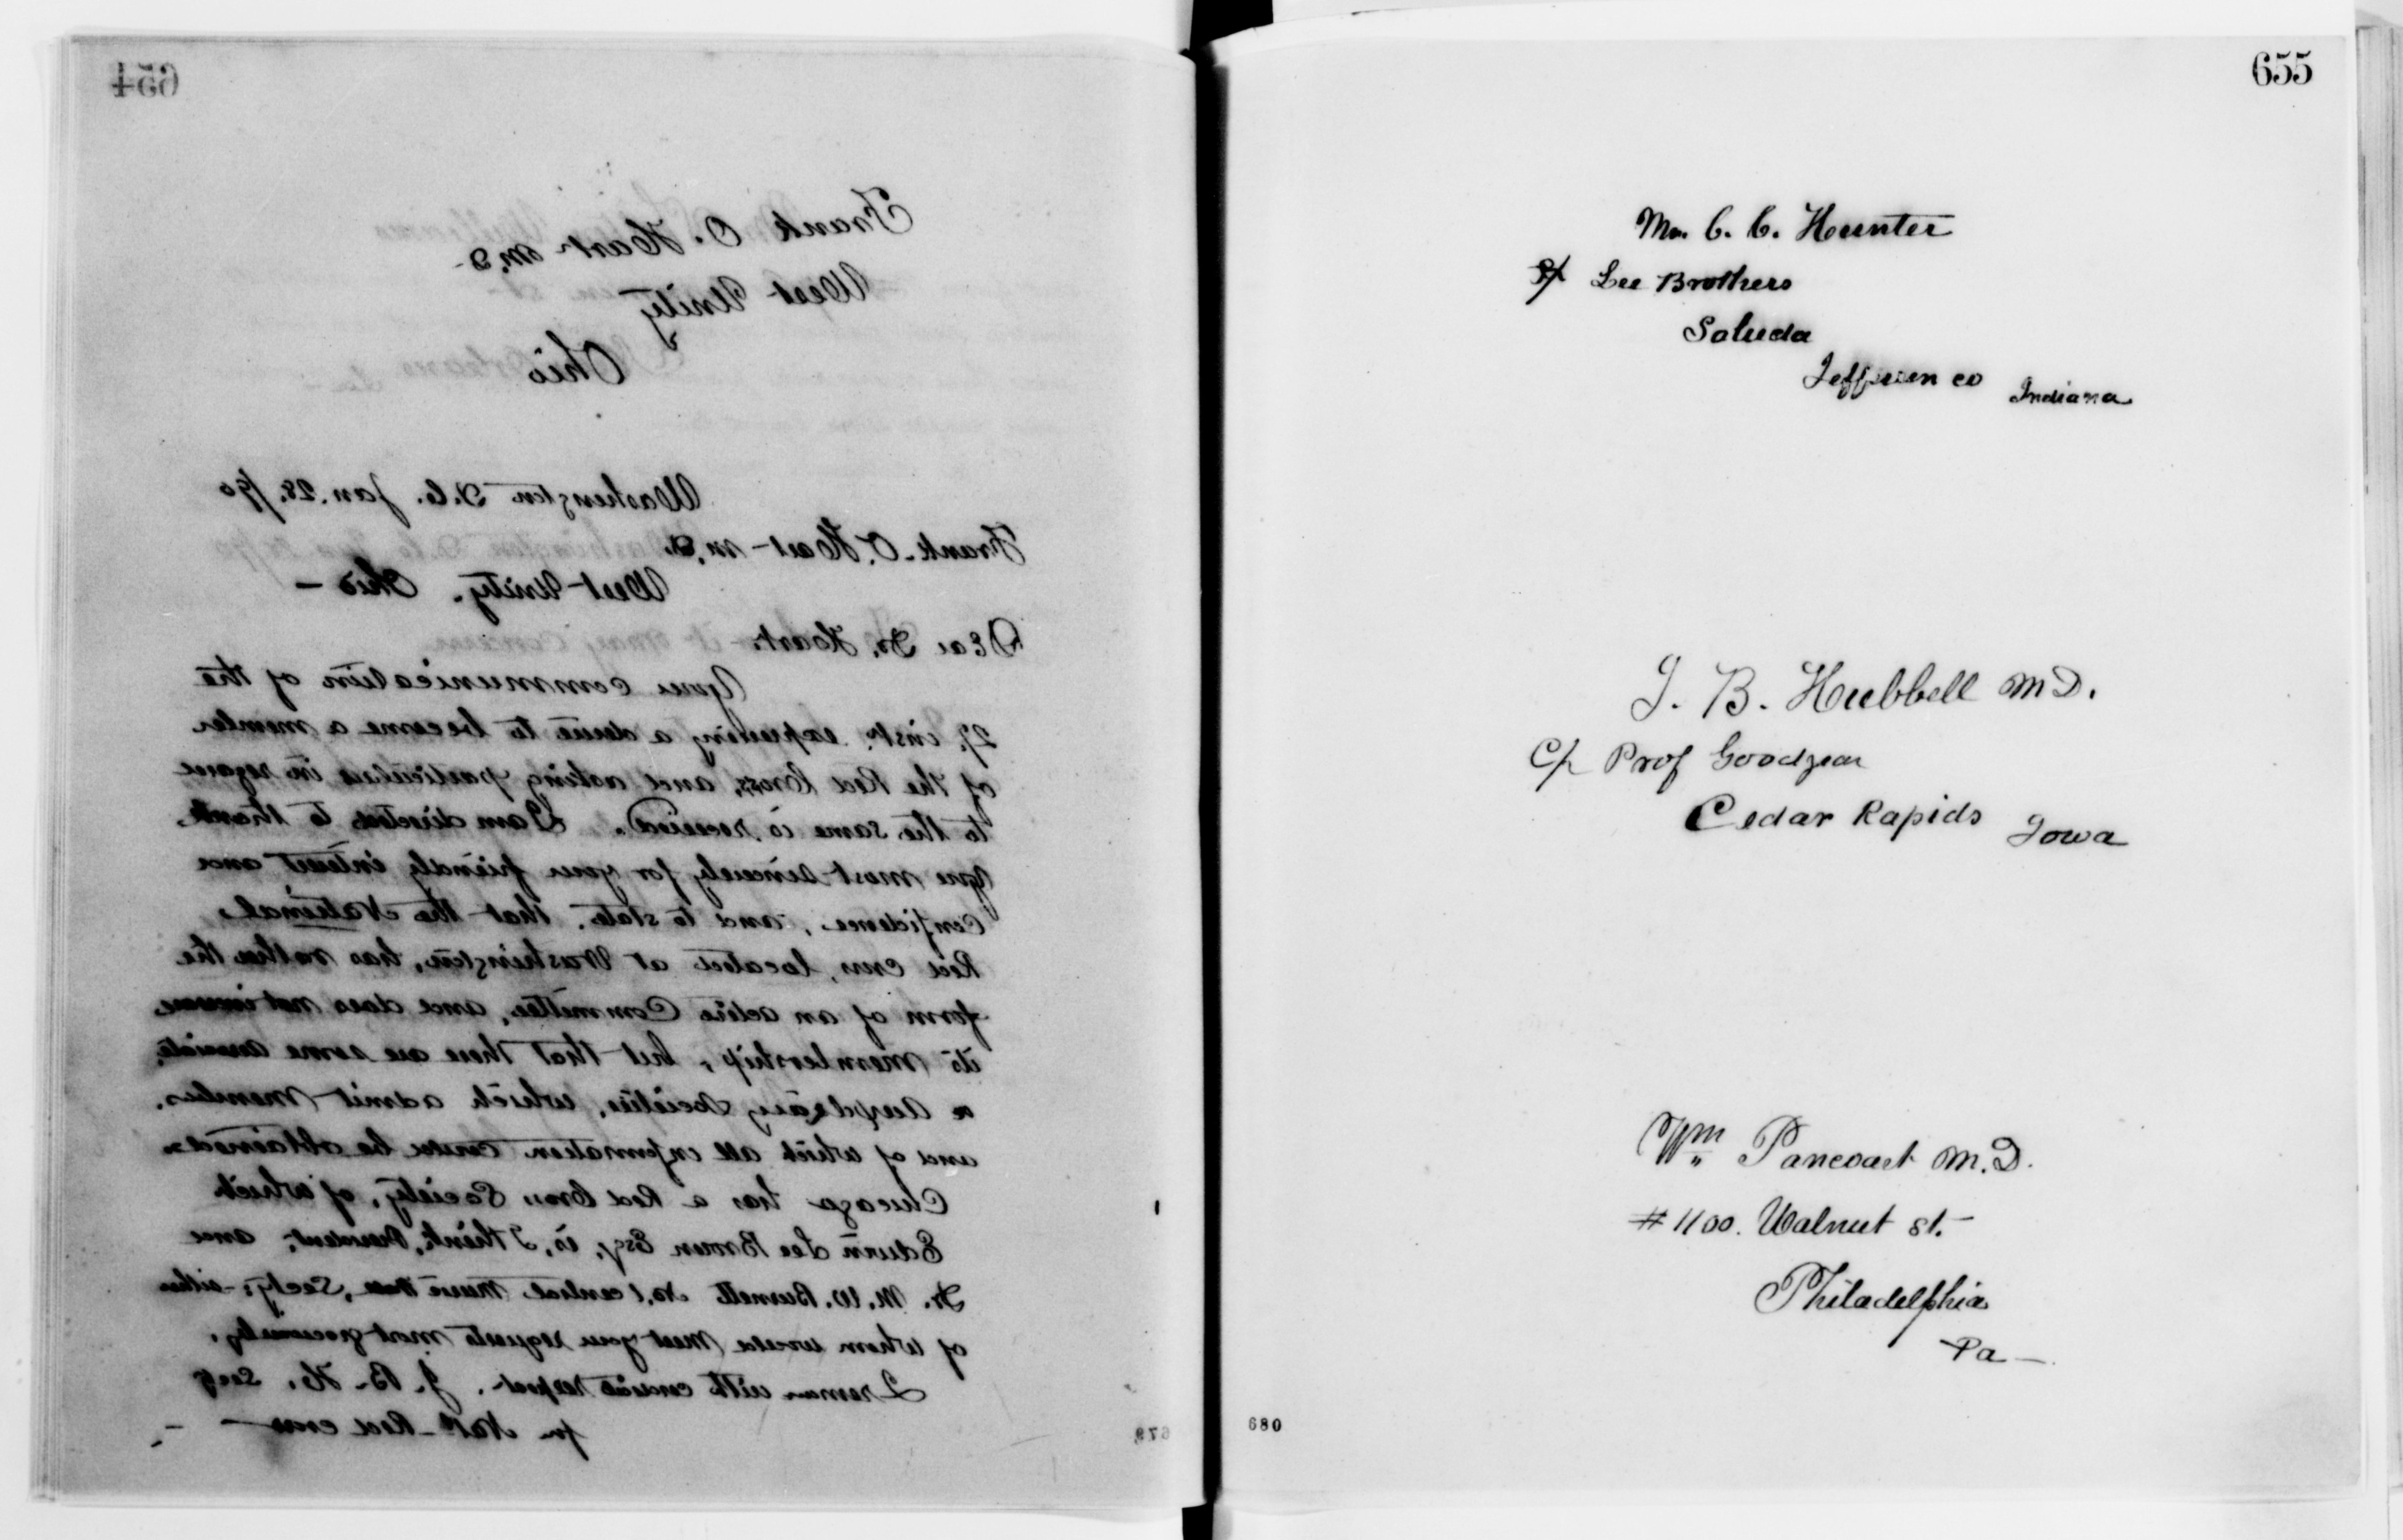 654
Frank O. Hart M.D.
West Unity
Ohio
Washington D.C. Jan. 28./90
Frank O. Hart M.D.
West Unity. Ohio —
Dear Dr. Hart.
Your communication of the
27. inst. expressing a desire to become a member
of the Red Cross, and asking particulars in regard
to the same is received. I am directed to thank
you most sincerely for your friendly interest and
confidence, and to state, that the National
Red Cross, located at Washington, has rather the
form of an active Committee, and does not increase
its membership, but that there are some associate
or Auxiliary Societies, which admit members,
and of which all information could be obtained.
Chicago has a Red Cross Society, of which
Edwin Lee Brown Esq. is, I think, President, and
Dr. M. W. Burnett No. 1 central Music Hall, Secty; either
of whom would meet your requests most
I remain with respect. J. B. H. Secy
for Natl. Red Cross
679
655
Mr. C. C. Hunter
c/o Lee Brothers
Saluda
Jefferson co Indiana
J. B. Hubbell M.D.
C/o Prof Goodyear
Cedar Rapids Iowa
Wm Pancoast M.D.
# 1100. Walnut St. —
Philadelphia
Pa —
680